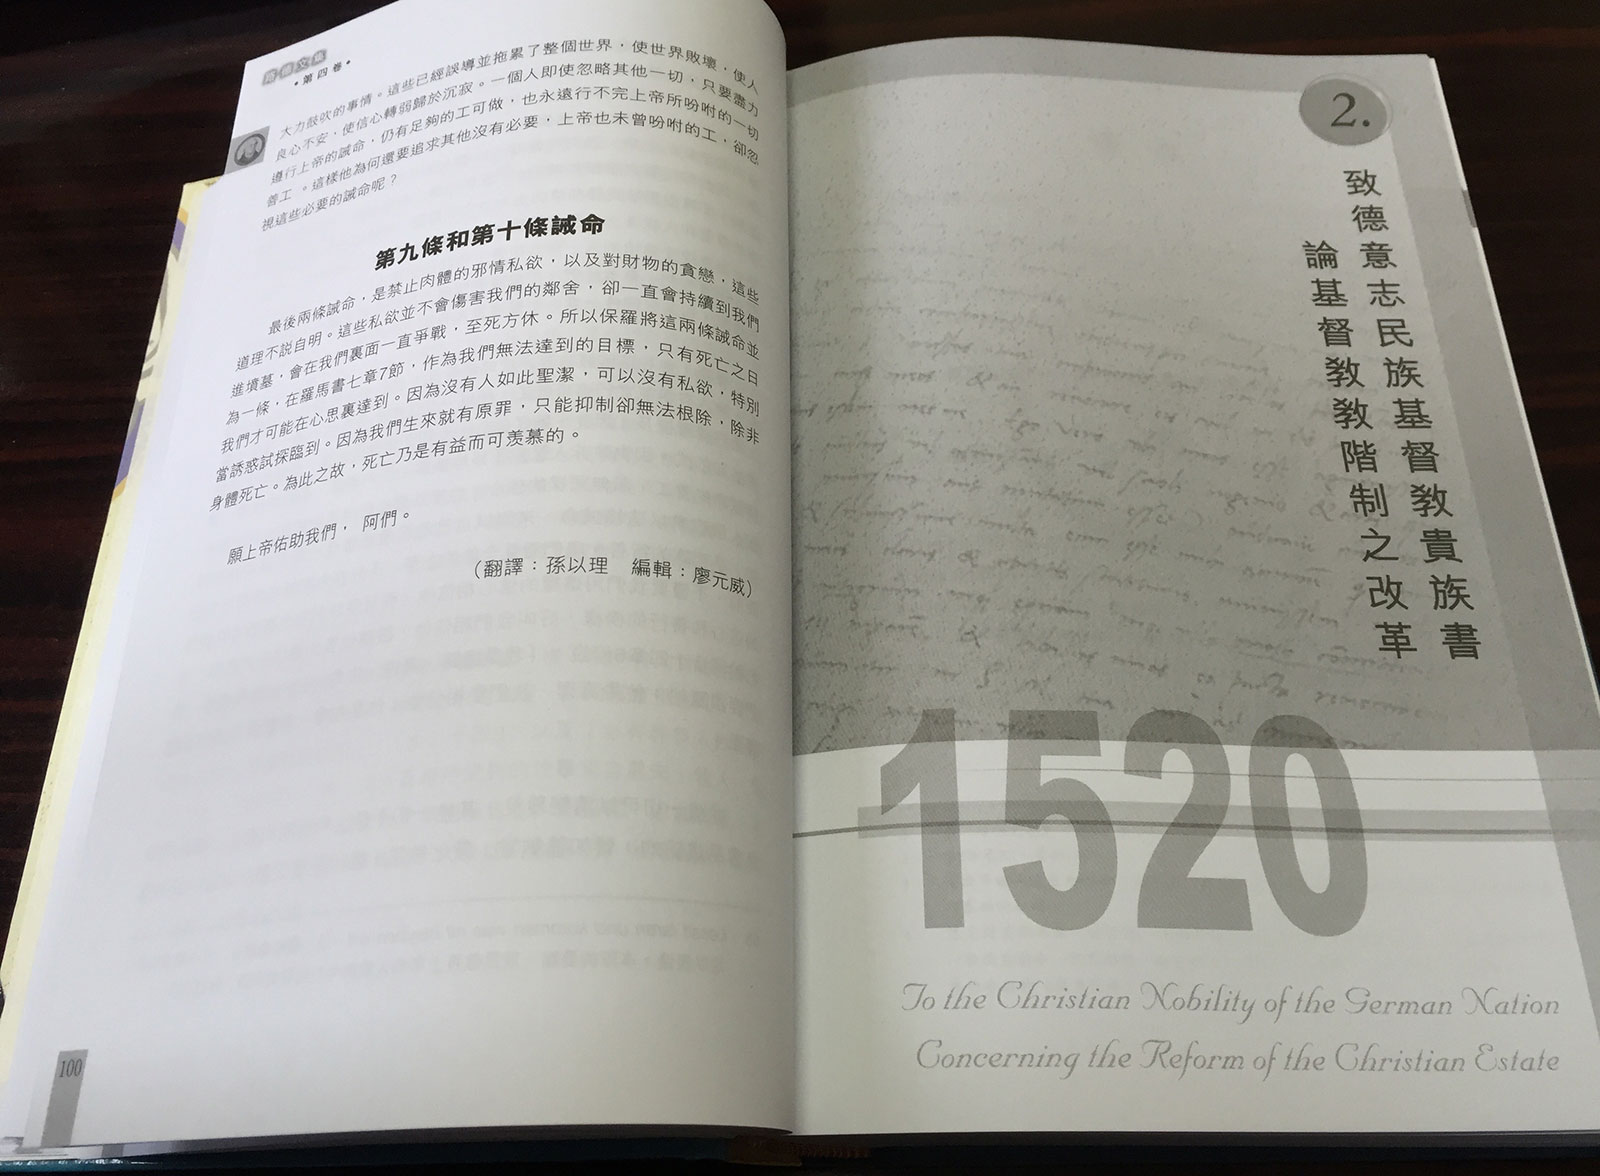 路德文集
·第四卷·
大力鼓吹的事情。這些已經誤導並拖累了整個世界，使世界敗壞，使人
良心不安，使信心轉弱歸於沉寂。一個人即使忽略其他一切，只要盡力
遵行上帝的誡命，仍有足夠的工可做，也永遠行不完上帝所吩咐的一切
善工 。這樣他為何還要追求其他沒有必要，上帝也未曾吩咐的工，卻忽
視這些必要的誡命呢？
第九條和第十條誡命
最後兩條誡命，是禁止肉體的邪情私欲，以及對財物的貪戀，這些
道理不說自明。這些私欲並不會傷害我們的鄰舍，卻一直會持續到我們
進墳墓，會在我們裏面一直爭戰，至死方休。所以保羅將這兩條誡命並
為一條，在羅馬書七章7節，作為我們無法達到的目標，只有死亡之日
我們才可能在心思裏達到。因為沒有人如此聖潔，可以沒有私欲，特別
當誘惑試探臨到。因為我們生來就有原罪，只能抑制卻無法根除，除非
身體死亡。為此之故，死亡乃是有益而可羨慕的。
願上帝佑助我們， 阿們。
（翻譯：孫以理 編輯：廖元威）
100
2.
致德意志民族基督教貴族書
論基督教教階制之改革
1520
To the Christian Nobility of the German Nation
Concerning the Reform of the Christian Estate